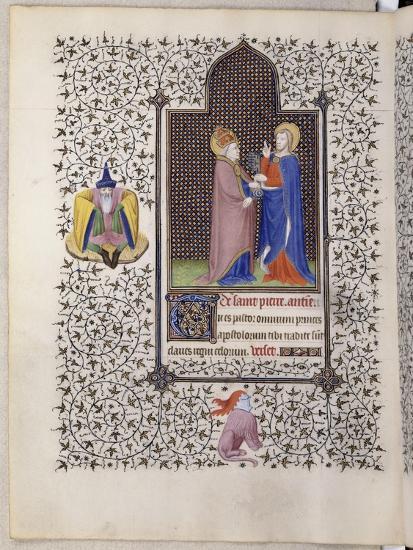 De saint pierre. antiene.
Tu es pastor omnium princeps
apostolorum tibi tradite sūt
claues regni celorum. Verset.